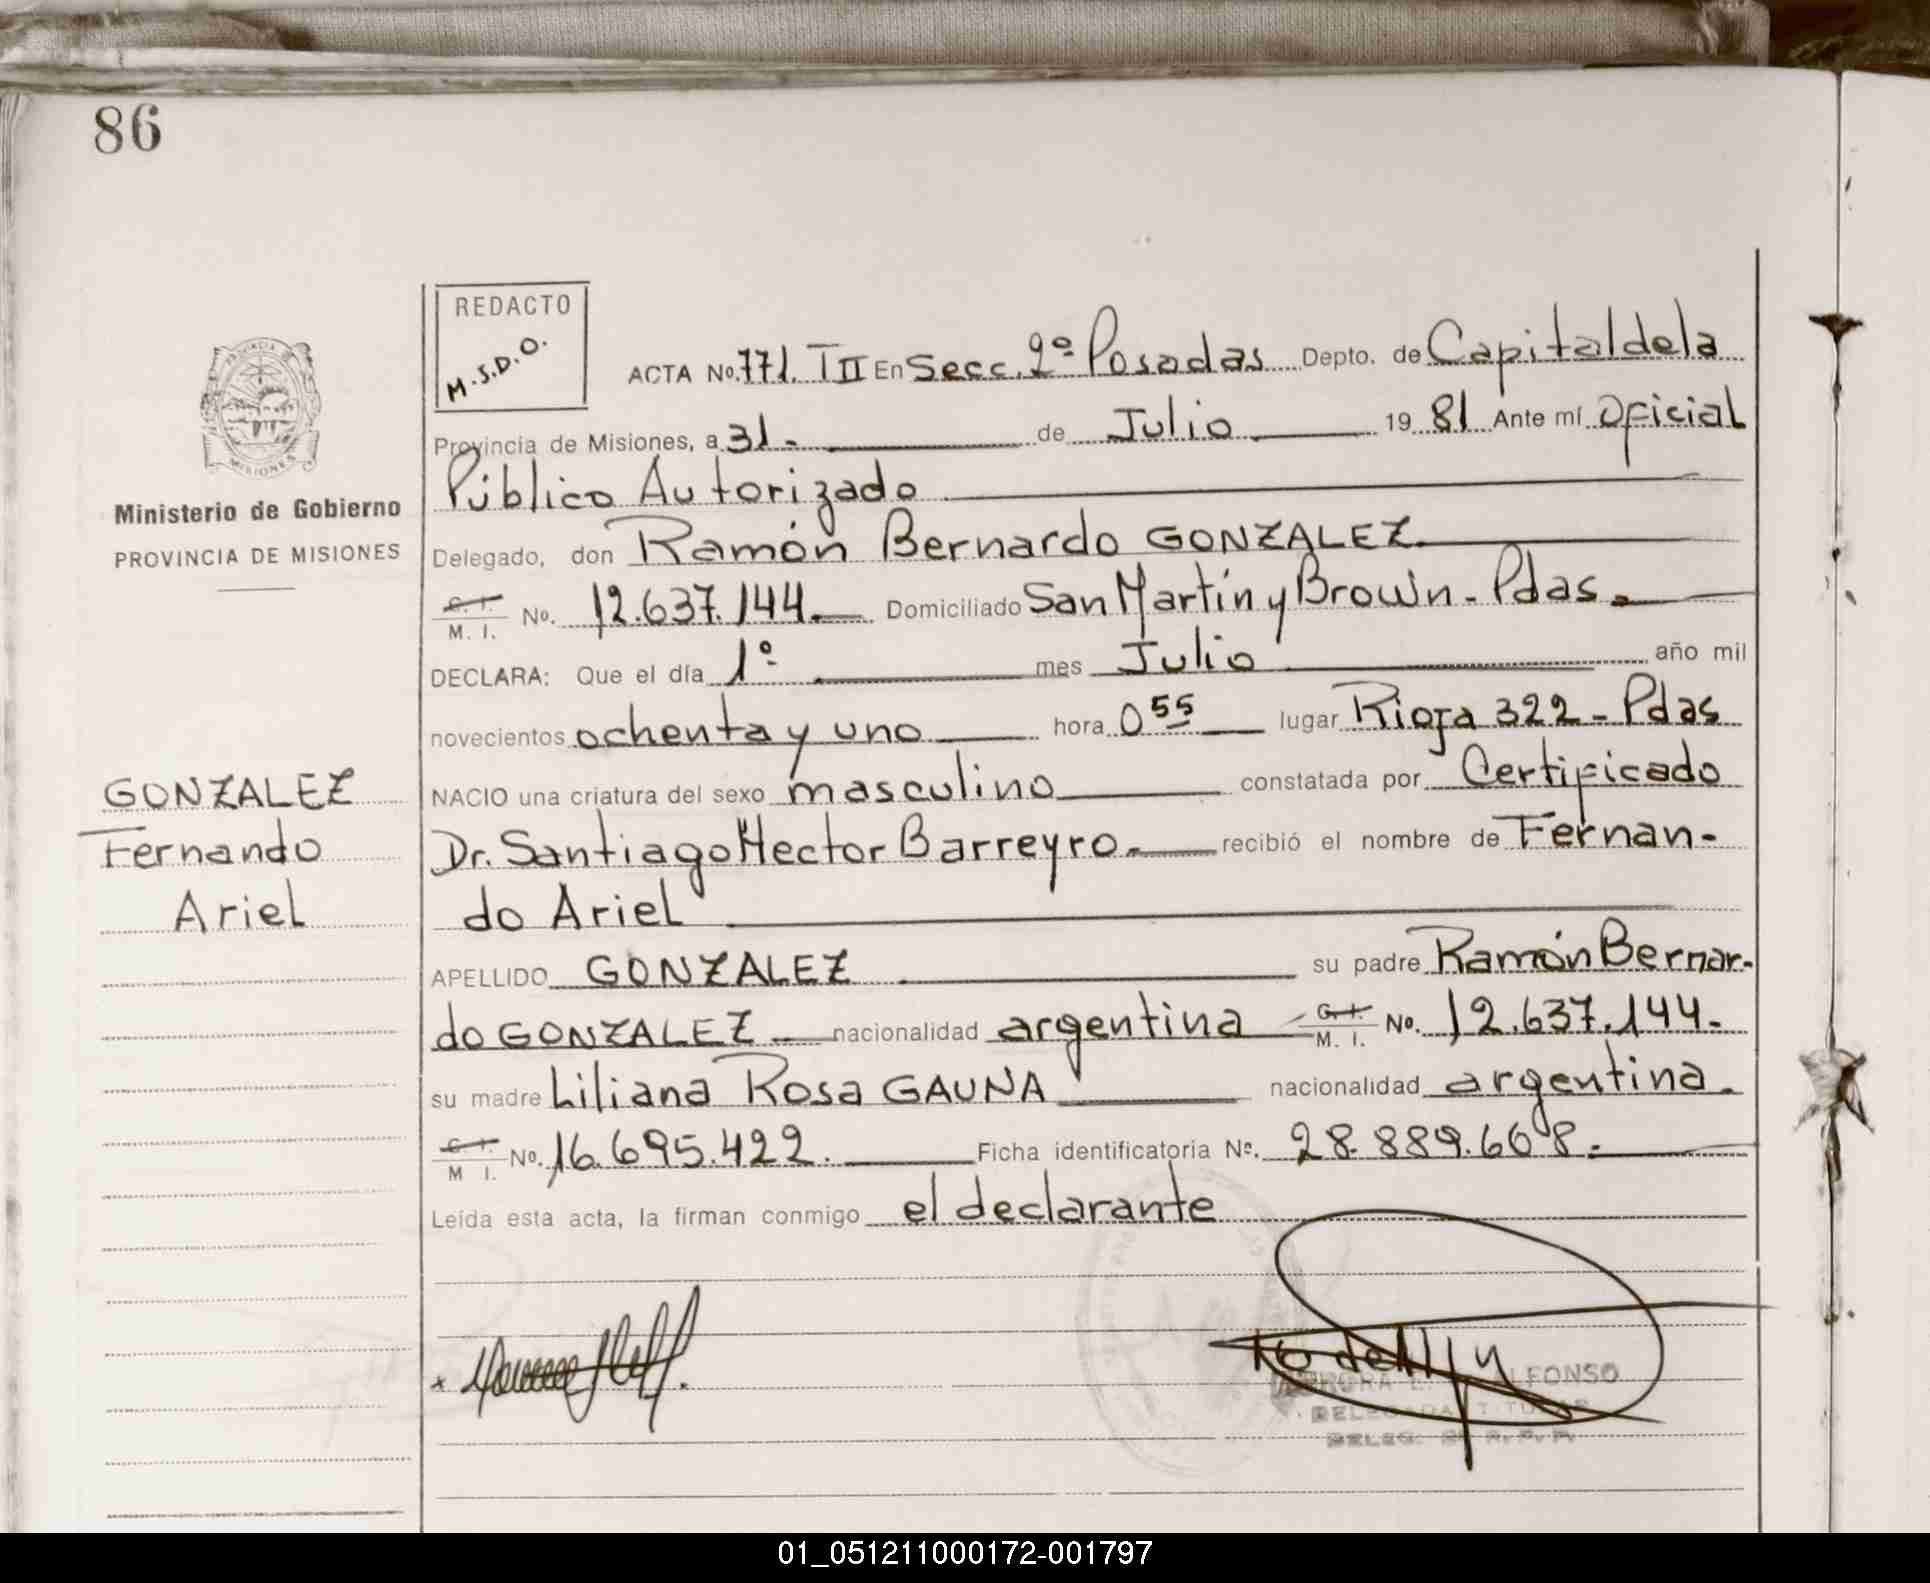 86
REDACTO
M.S.D.O.
PROVINCIA DE
MISIONES
Ministerio de Gobierno
PROVINCIA DE MISIONES
GONZALEZ
Fernando
Ariel
ACTA No. 771. TII En Secc. 2º Posadas Depto. de Capital de la
Provincia de Misiones, a 31.- de Julio 19 81 Ante mí Oficial
Público Autorizado
Delegado, don Ramón Bernardo GONZALEZ
C. I.
M. I. No. 12.637.144. Domiciliado San Martín y Brown - Pdas.
DECLARA: Que el día 1º mes Julio año mil
novecientos ochenta y uno hora 0 55 lugar Rioja 322 - Pdas
NACIO una criatura del sexo masculino constatada por Certificado
Dr. Santiago Hector Barreyro. recibió el nombre de Fernan-
do Ariel
APELLIDO GONZALEZ su padre Ramón Bernar-
do GONZALEZ nacionalidad argentina C. I.
M. I. No. 12.637.144.
su madre Liliana Rosa GAUNA nacionalidad argentina.
C. I.
M I. No. 16.695.422. Ficha identificatoria Nº. 28.889.608.
Leída esta acta, la firman conmigo el declarante
ALFONSO
01_051211000172-001797